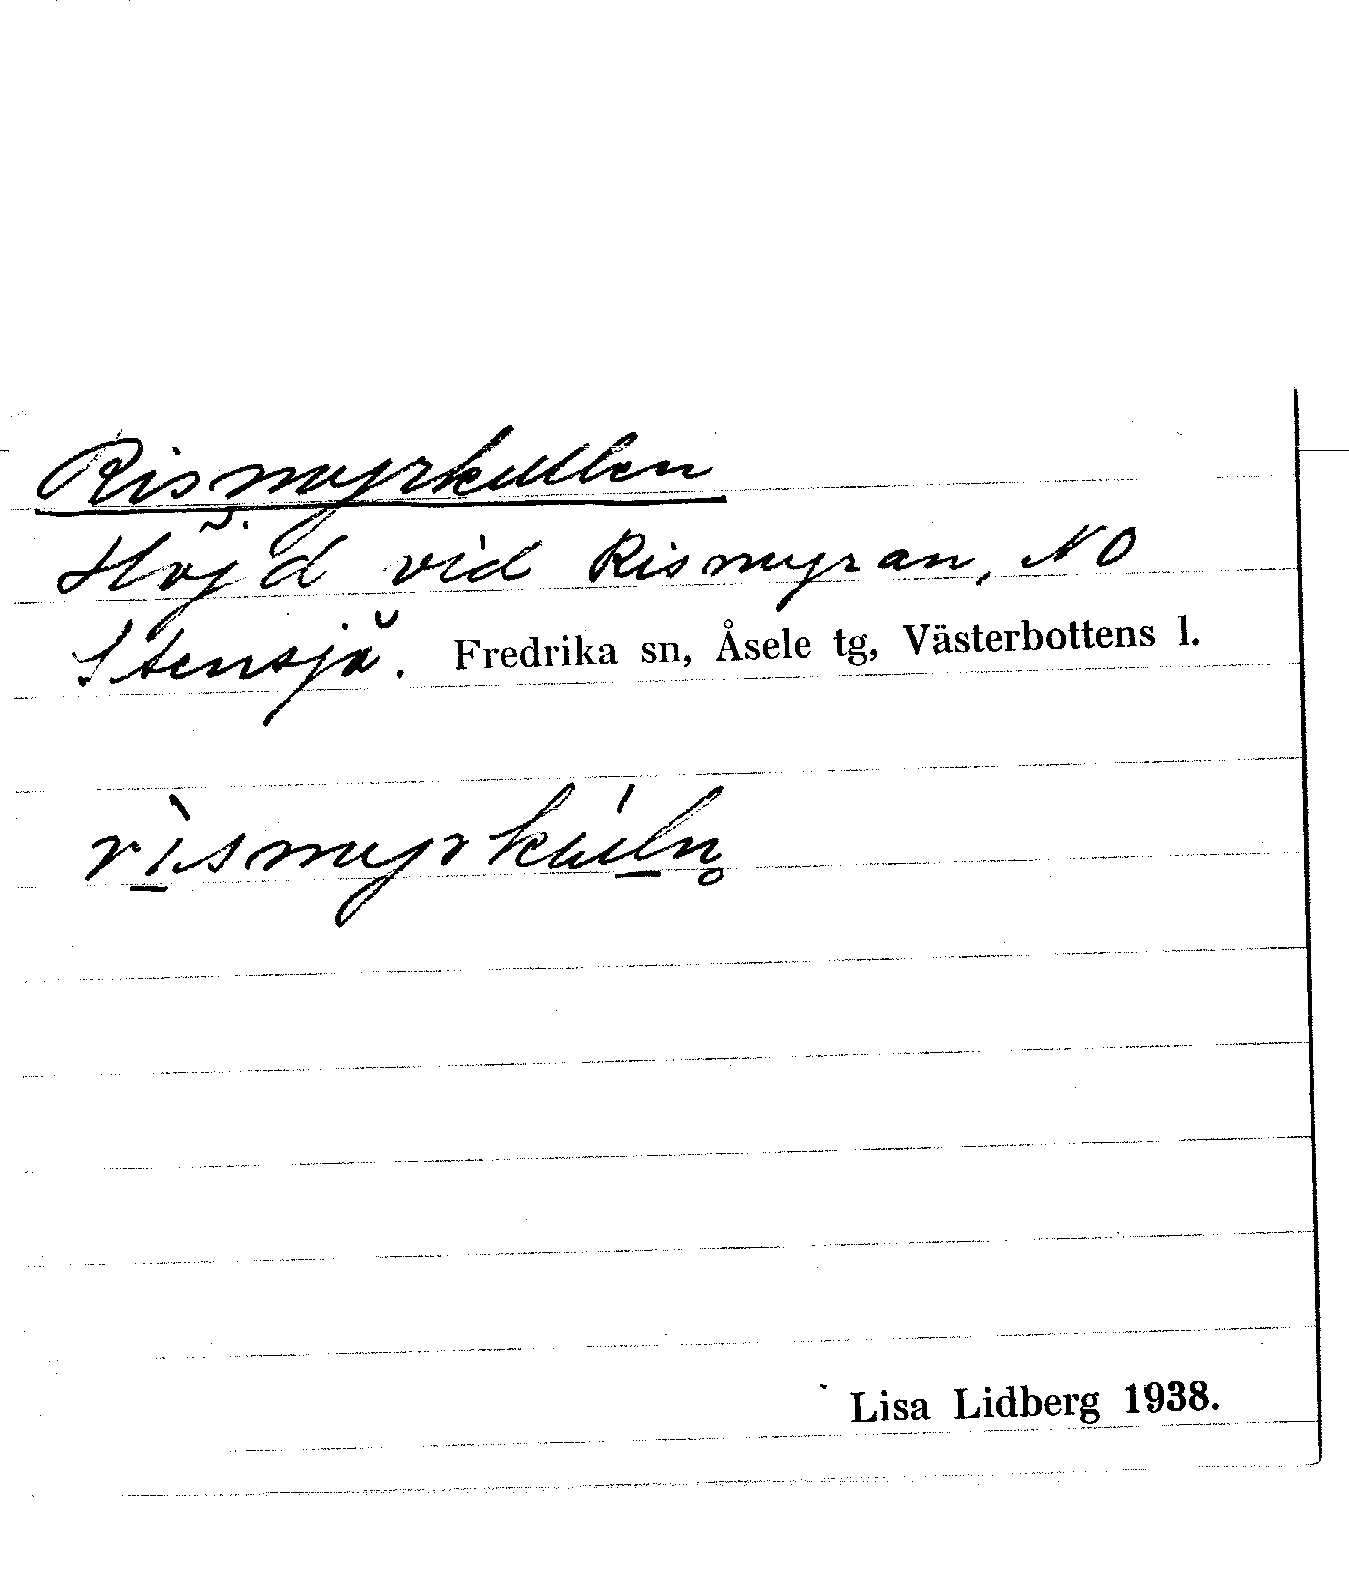 Rismyrkullen
Höjd vid Rismyran, NO
Stensjö. Fredrika sn, Åsele tg, Västerbottens l.
rìsmyrkúln̥
Lisa Lidberg 1938.